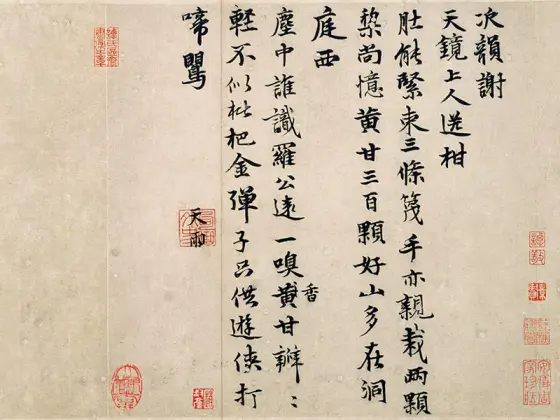 次韻謝
天鏡上人送柑
肚能緊束三條篾手亦親栽兩顆
棃尚憶黃甘三百顆好山多在洞
庭西
塵中誰識羅公遠一嗅黃甘瓣〻
香
輕不似枇杷金彈子只供遊俠打
啼鸎
天雨